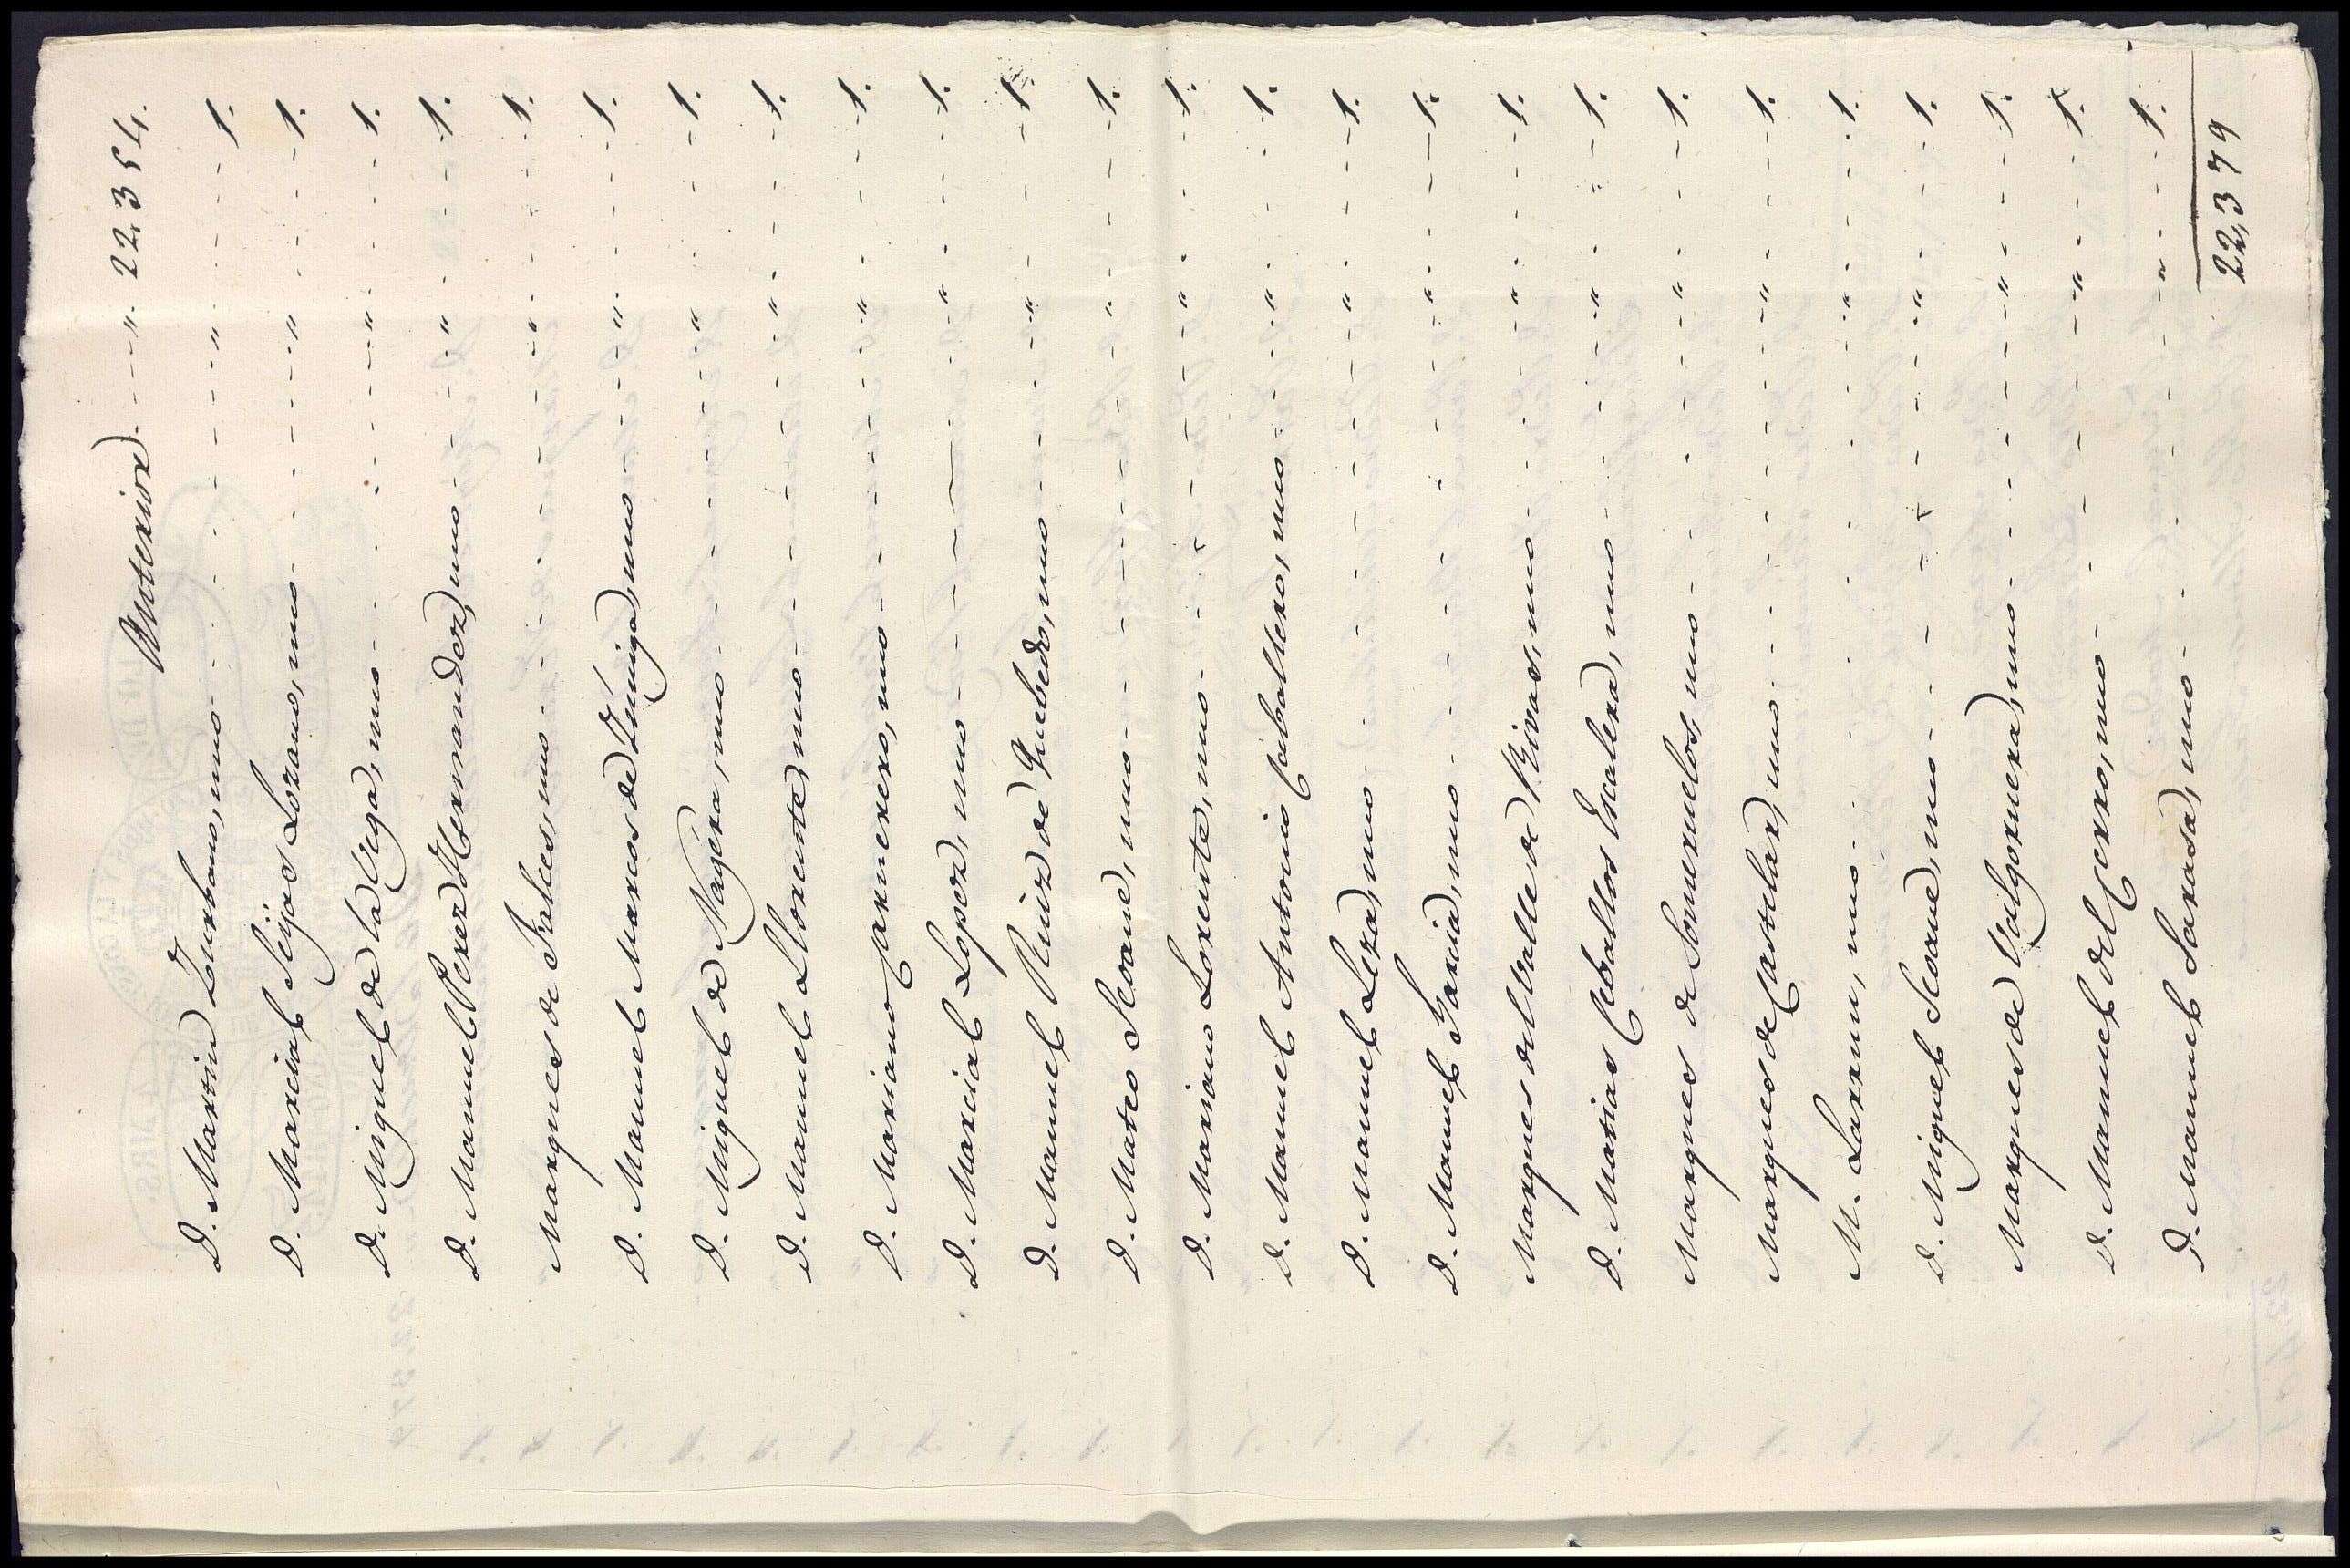 Anterior - - - - - " - 22,354.
D. Martin Zurbano, uno - - - - - " - - - 1.
D. Marcial Seijas Lozano, uno - - - - - " - - - 1.
D. Miguel de la Vega, uno - - - - - " - - - 1.
D. Manuel Perez Hernandez, uno - - - - - " - - - 1.
Marques de Falces, uno - - - - - " - - - 1.
D. Manuel Marcos de Zuñiga, uno - - - - - " - - - 1.
D. Miguel de Nagera, uno - - - - - " - - - 1.
D. Manuel Llorente, uno - - - - - " - - - 1.
D. Mariano Carnerero, uno - - - - - " - - - 1.
D. Marcial Lopez, uno - - - - - " - - - 1.
D. Manuel Ruiz de Quebedo, uno - - - - - " - - - 1.
D. Mateo Seoane, uno - - - - - " - - - 1.
D. Mariano Lorente, uno - - - - - " - - - 1.
D. Manuel Antonio Caballero, uno - - - - - " - - - 1.
D. Manuel Leza, uno - - - - - " - - - 1.
D. Manuel Garcia, uno - - - - - " - - - 1.
Marques del Valle de Rivas, uno - - - - - " - - - 1.
D. Matias Ceballos Escalera, uno - - - - - " - - - 1.
Marques de Someruelos, uno - - - - - " - - - 1.
Marques de Castelar, uno - - - - - " - - - 1.
M. Larenu, uno - - - - - " - - - 1.
D. Miguel Seoane, uno - - - - - " - - - 1.
Marques de Valgornera, uno - - - - - " - - - 1.
D. Manuel del Cerro, uno - - - - - " - - - 1.
D. Manuel Sarasa, uno - - - - - " - - - 1.
22,379